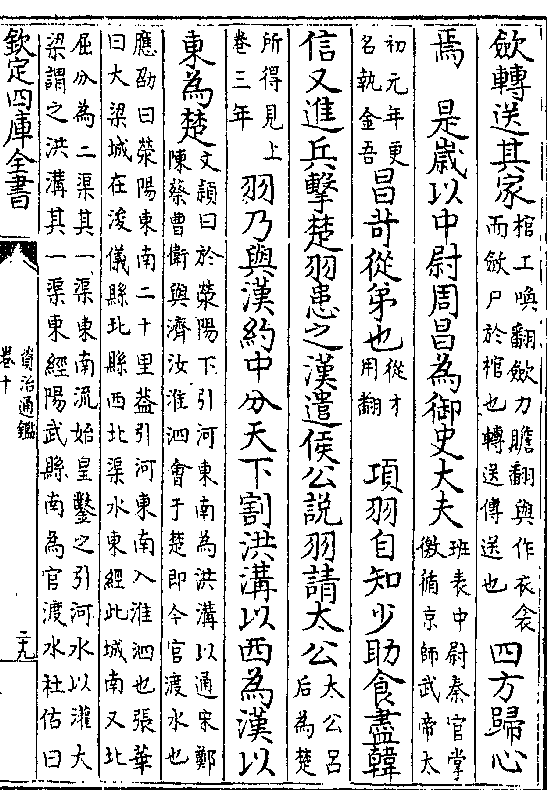 歛轉送其家棺工喚翻歛力贍翻與作衣衾
而歛尸於棺也轉送傳送也四方歸心
焉　是歲以中尉周昌為御史大夫班表中尉秦官掌
徼循京師武帝太
初元年更
名執金吾昌苛從弟也從才
用翻　項羽自知少助食盡韓
信又進兵擊楚羽患之漢遣侯公説羽請太公太公吕
后為楚
所得見上
卷三年羽乃與漢約中分天下割洪溝以西為漢以
東為楚文頴曰於滎陽下引河東南為洪溝以通宋鄭
陳蔡曹衛與濟汝淮泗會于楚即今官渡水也
應劭曰滎陽東南二十里葢引河東南入淮泗也張華
曰大梁城在浚儀縣北縣西北渠水東經此城南又北
屈分為二渠其一渠東南流始皇鑿之引河水以灌大
梁謂之洪溝其一渠東經陽武縣南為官渡水杜佑曰
欽定四庫全書
資治通鑑
卷十